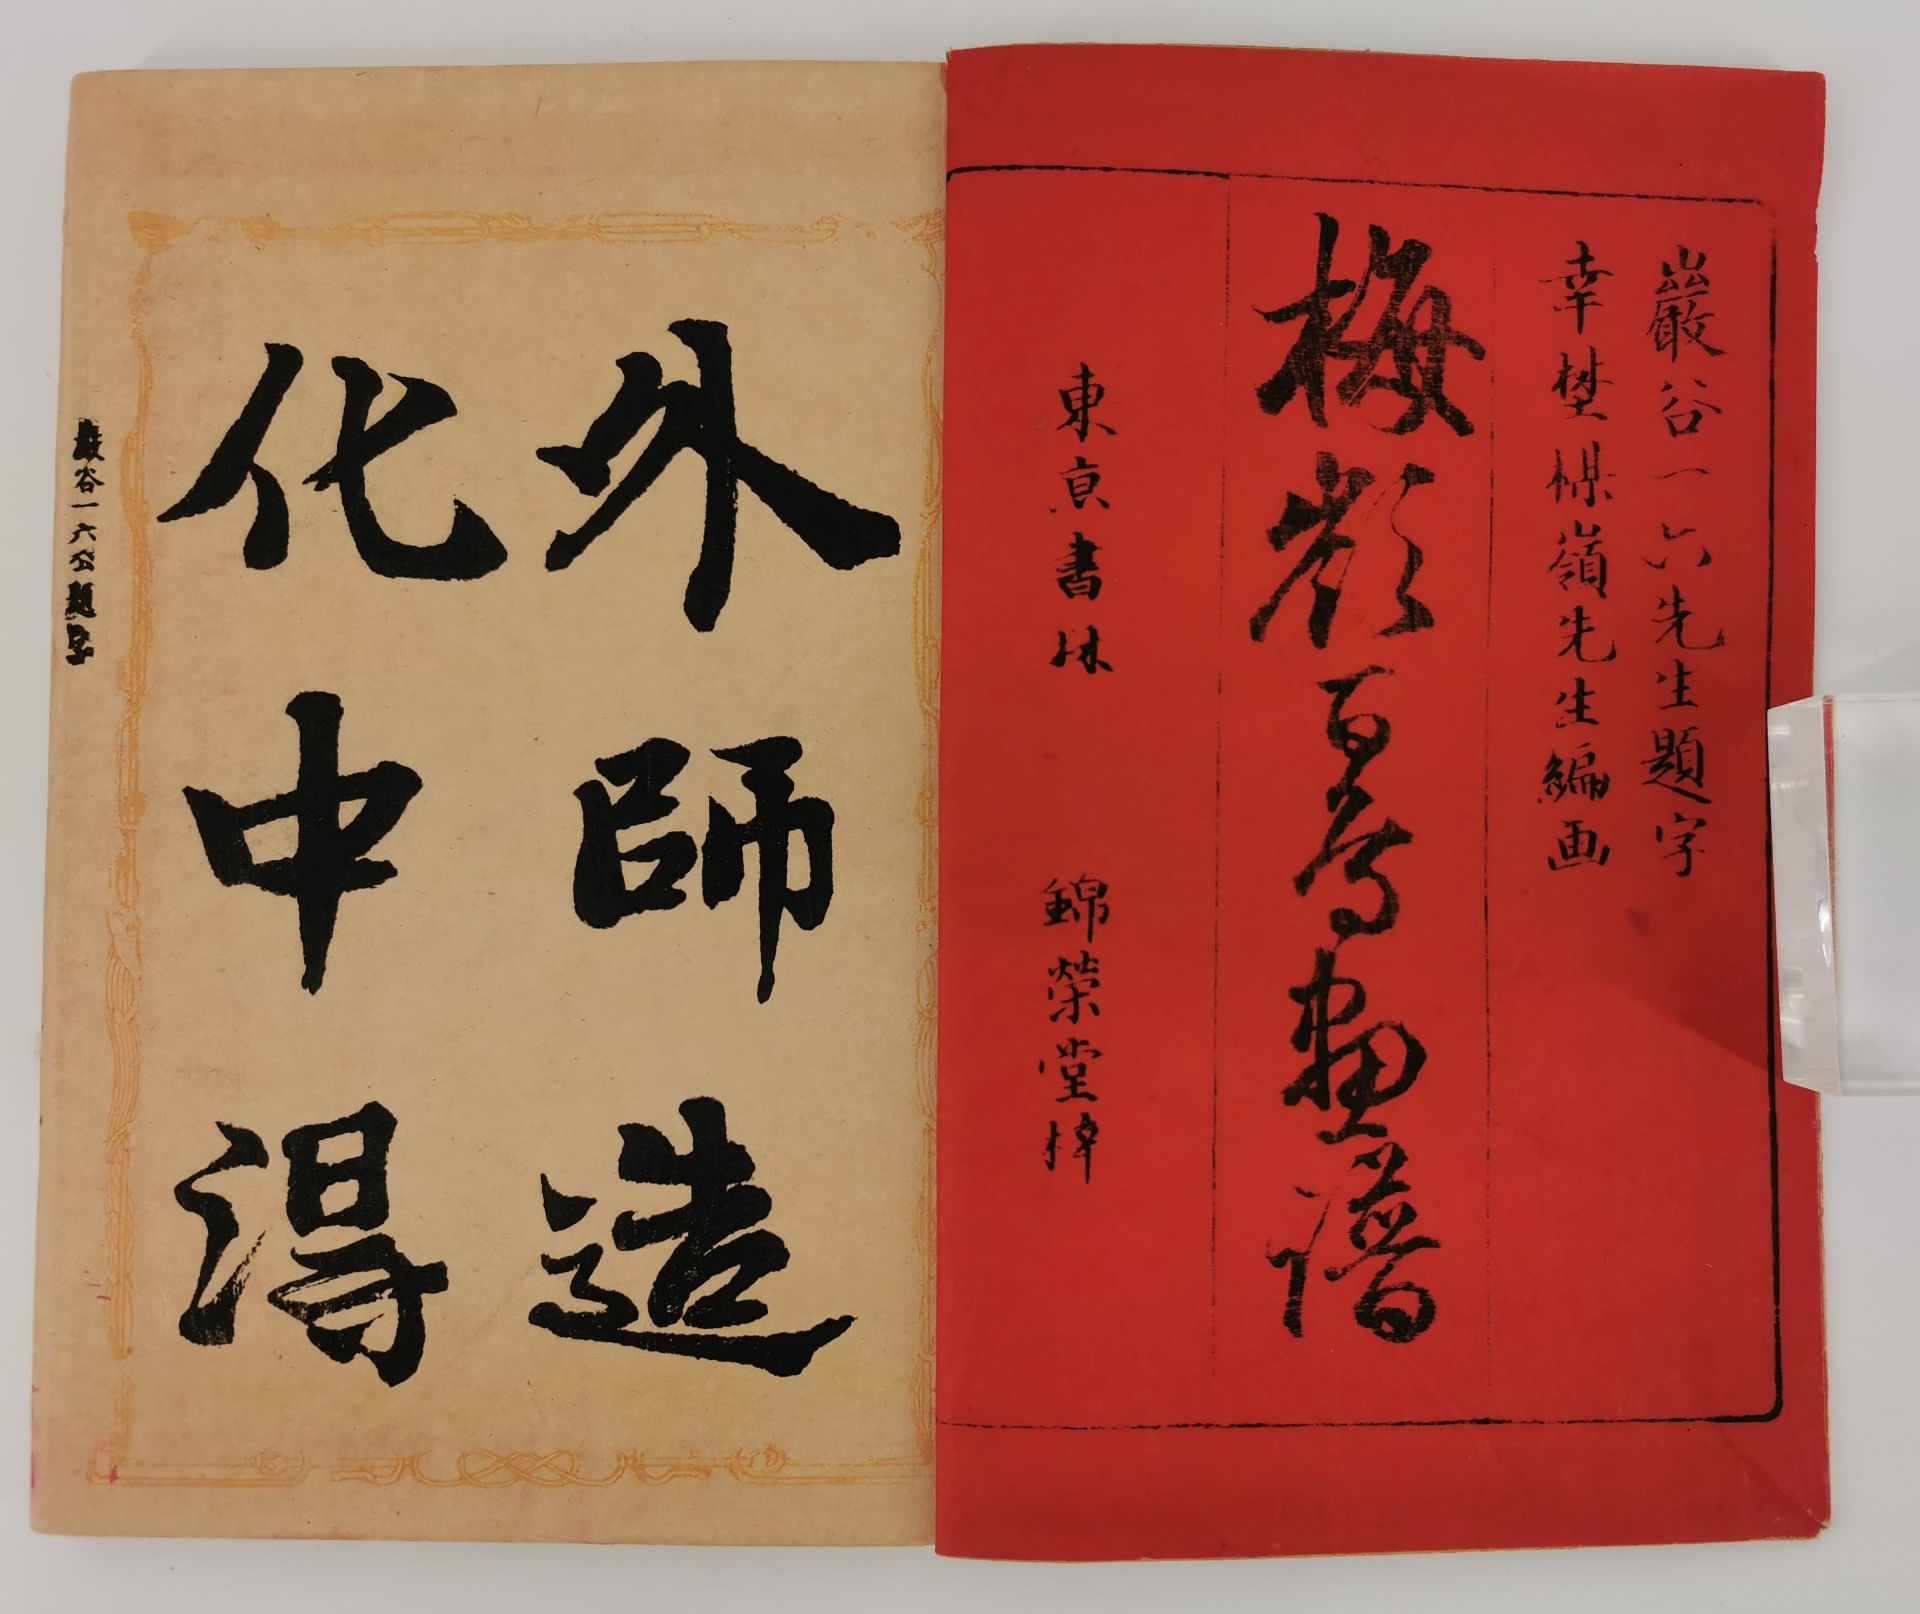 巖谷一六先生題字
幸埜楳嶺先生編画
梅嶺百鳥畫譜
東亰書林 錦榮堂梓
外師造
化中得
巌谷一六公題字